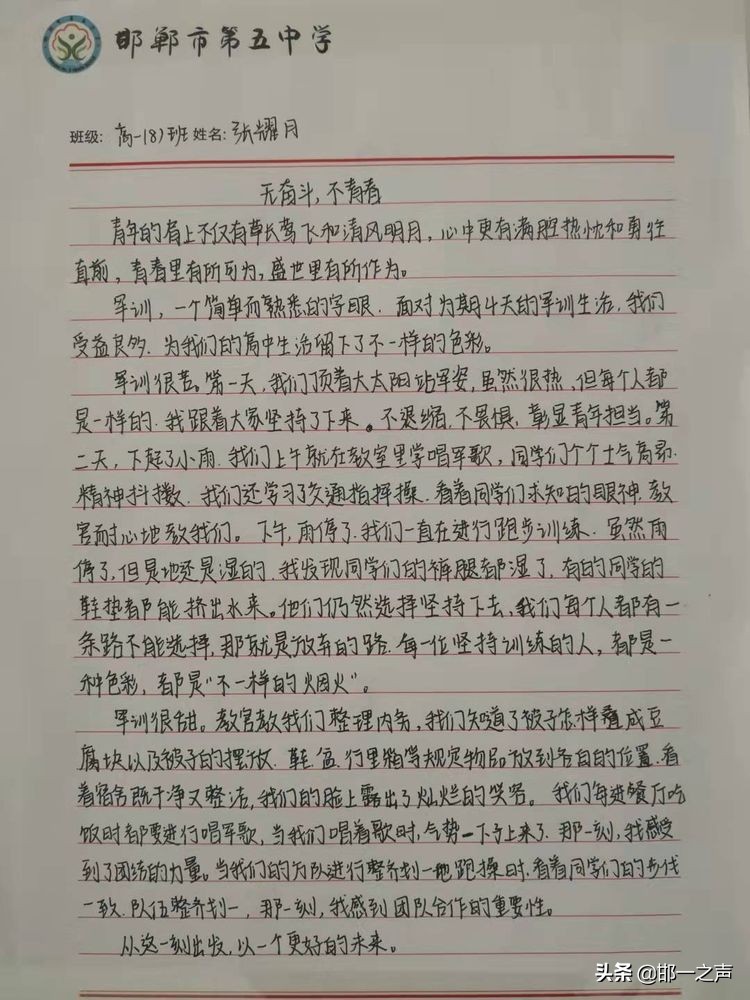 邯郸市第五中学
班级: 高一(8)班 姓名: 张耀月
无奋斗,不青春
青年的肩上不仅有草长莺飞和清风明月,心中更有满腔热忱和勇往
直前,青春里有所可为,盛世里有所作为。
军训,一个简单而熟悉的字眼.面对为期4天的军训生活,我们
受益良多.为我们的高中生活留下了不一样的色彩。
军训很苦。第一天,我们顶着大太阳站军姿,虽然很热,但每个人都
是一样的.我跟着大家坚持了下来。不退缩,不畏惧,彰显青年担当。第
二天,下起了小雨.我们上午就在教室里学唱军歌,同学们个个士气高昂.
精神抖擞.我们还学习了交通指挥操.看着同学们求知的眼神,教
官耐心地教我们。下午,雨停了.我们一直在进行跑步训练.虽然雨
停了,但是地还是湿的.我发现同学们的裤腿都湿了,有的同学的
鞋垫都能挤出水来。他们仍然选择坚持下去,我们每个人都有一
条路不能选择,那就是放弃的路.每一位坚持训练的人,都是一
种色彩,都是"不一样的烟火"。
军训很甜。教官教我们整理内务,我们知道了被子怎样叠成豆
腐块以及被子的摆放.鞋.盆.行里箱等规定物品放到各自的位置.看
着宿舍既干净又整洁,我们的脸上露出了灿烂的笑容。我们每进餐厅吃
饭时都要进行唱军歌,当我们唱着歌时,气势一下子上来了.那一刻,我感受
到了团结的力量。当我们的方队进行整齐划一地跑操时.看着同学们的步伐
一致.队伍整齐划一,那一刻,我感到团队合作的重要性。
从这一刻出发,以一个更好的未来。
头条 @邯一之声